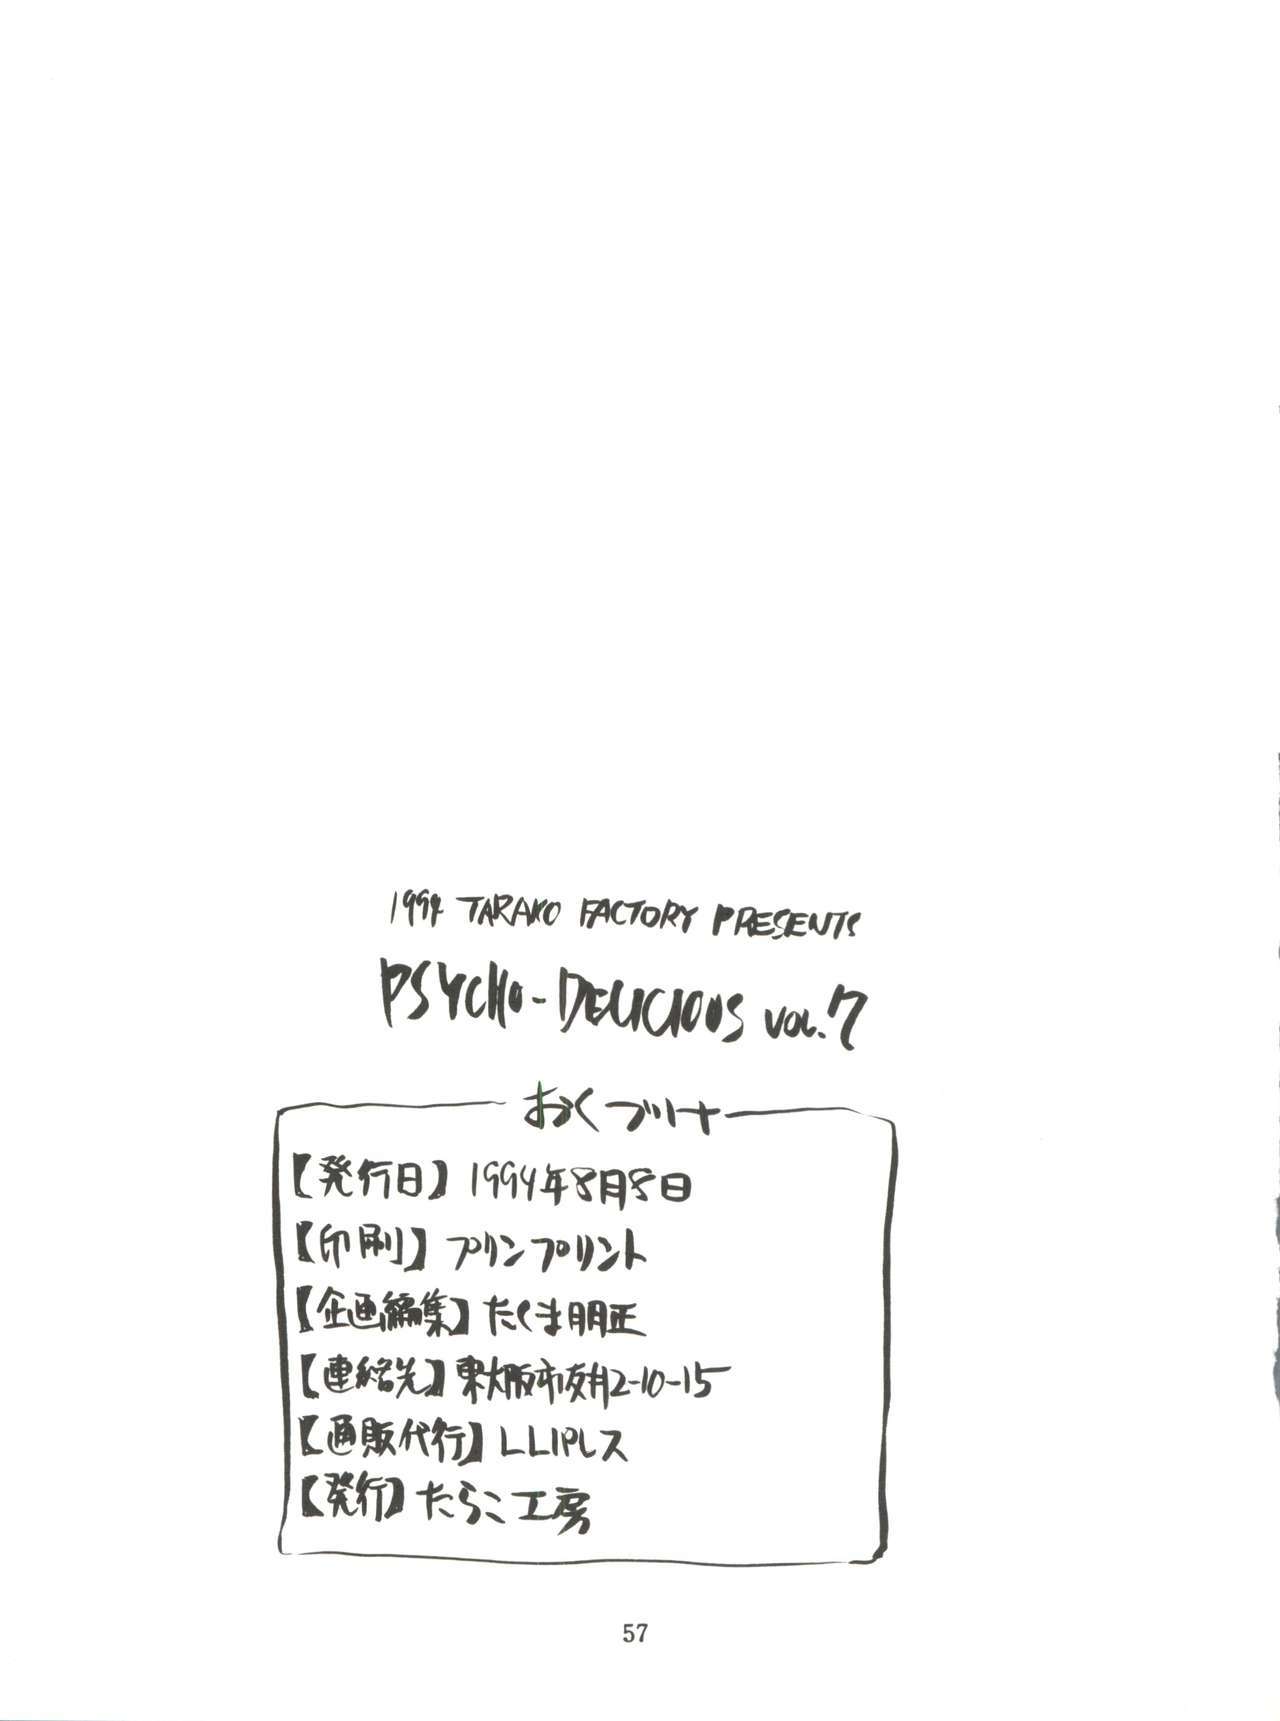 1994 TARAKO FACTORY PRESENTS
PSYCHO-DELICIOUS VOL.7
おくブリナ
【発行日】1994年8月8日
【印刷】プリンプリント
【企画編集】たくま朋正
【連絡先】東大阪市友井2-10-15
【通販代行】LLパレス
【発行】たらこ工房
57